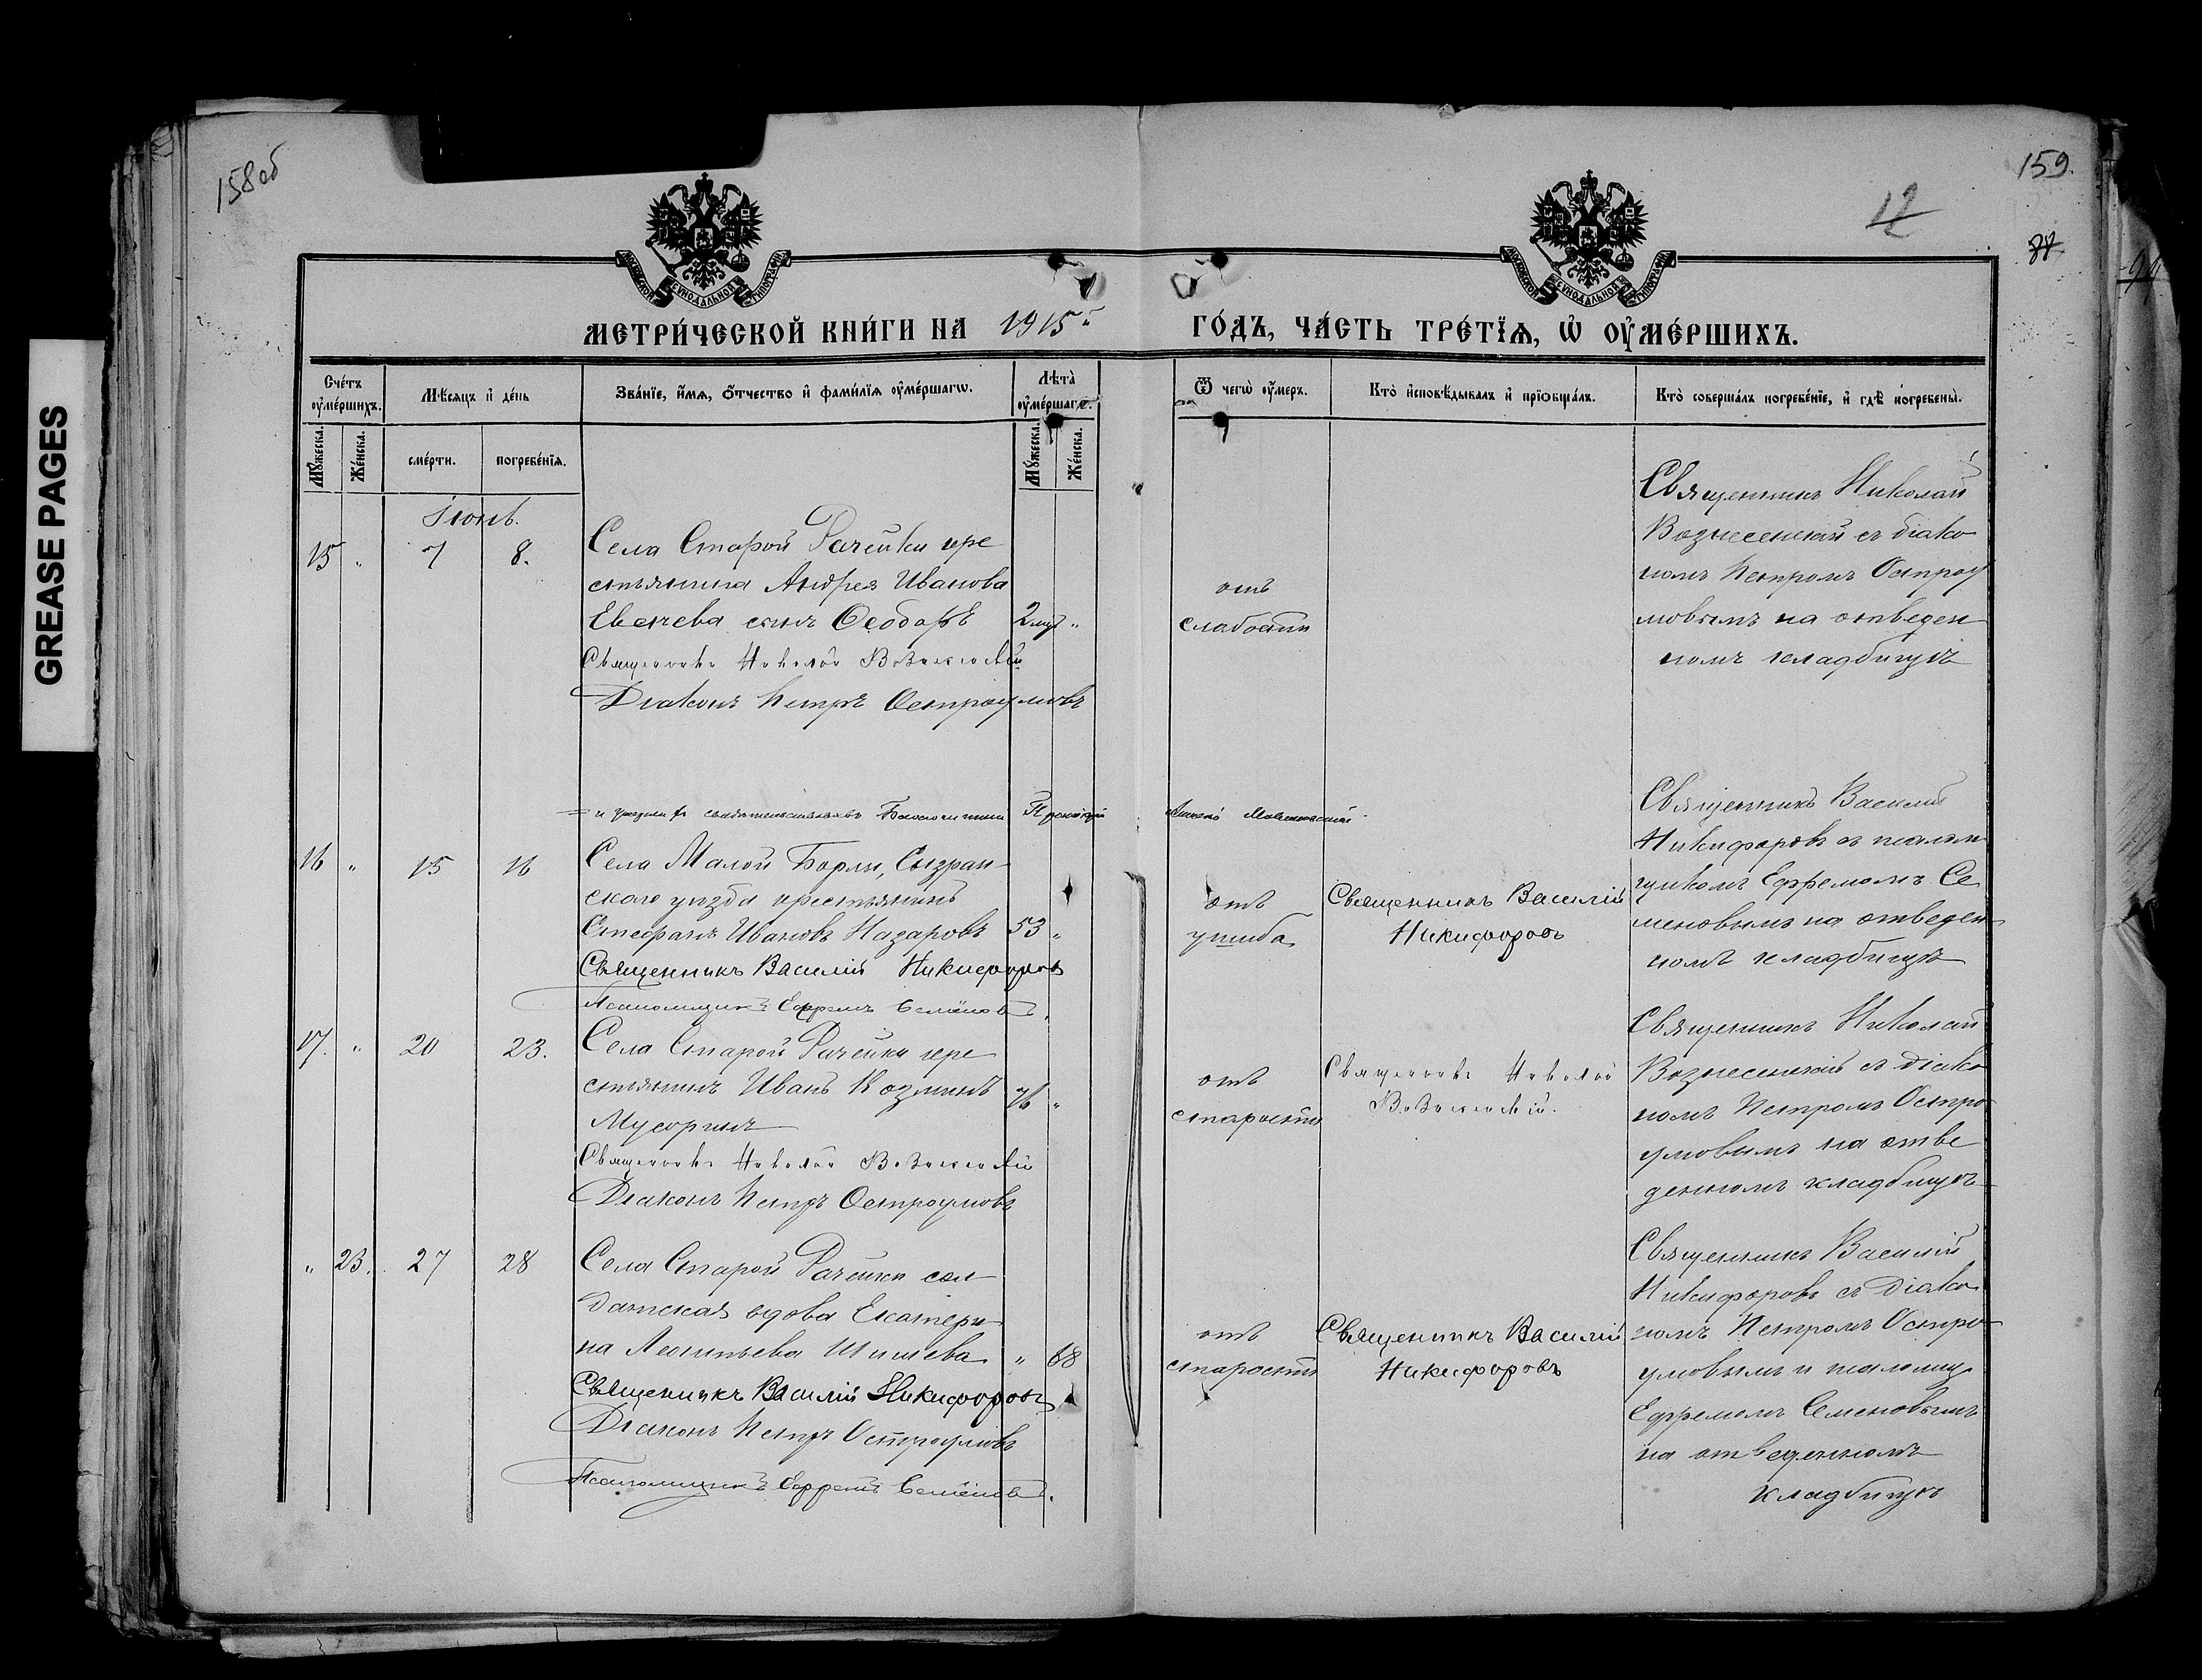 GREASE PAGES
158об
159.
12
МОСКОВСКОЙ СѴНОДАЛЬНОЙ ТИПОГРАФІИ
МОСКОВСКОЙ СѴНОДАЛЬНОЙ ТИПОГРАФІИ
МЕТРИ́ЧЕСКОЙ КНИ́ГИ НА 1915й ГО́ДЪ, ЧА́СТЬ ТРЕ́ТЇѦ, Ѡ҆ ОУ҆МЕ́РШИХЪ.
Сче́тъ оу҆ме́ршихъ.
Мѣ́сѧцъ и҆ де́нь
Зва́нїе, и҆́мѧ, ѻ҆́тчество и҆ фами́лїѧ оу҆ме́ршагѡ.
Лѣ́та оу҆ме́ршагѡ.
Ѿ чегѡ̀ оу҆́меръ.
Кто̀ и҆сповѣ́дывалъ и҆ прїѡбща́лъ.
Кто̀ соверша́лъ погребе́нїе, и҆ гдѣ̀ погребены̀.
Мꙋ́жеска.
Же́нска.
сме́рти.
погребе́нїѧ.
Мꙋ́жеска.
Же́нска.
Іюнь.
15 " 7 8.
Села Старой Рачейки кре
стьянина Андрея Иванова
Евсеева сынъ Ѳеодоръ 2 мѣс "
Священникъ Николай Вознесенскій
Діаконъ Петръ Остроумовъ
отъ
слабости
Священникъ Николай
Вознесенскій съ діако
номъ Петромъ Остроу
мовымъ на отведен
номъ кладбищѣ
16 " 15 16
Села Малой Борлы, Сызран-
скаго уѣзда крестьянинъ
Стефанъ Ивановъ Назаровъ 53 "
Священникъ Василій Никифоровъ
Псаломщикъ Ефремъ Семёновъ.
отъ
ушиба
Священникъ Василій
Никифоровъ
Священникъ Василій
Никифоровъ съ псалом
щикомъ Ефремомъ Се
меновымъ на отведен
номъ кладбищѣ
17. " 20 23.
Села Старой Рачейки кре
стьянинъ Иванъ Козминъ 76 "
Мусоринъ
Священникъ Николай Вознесенскій
Діаконъ Петръ Остроумовъ
отъ
старости
Священникъ Николай
Вознесенскій.
Священникъ Николай
Вознесенскій съ діако
номъ Петромъ Остро
умовымъ на отве
денномъ кладбищѣ
" 23. 27 28
Села Старой Рачейки сол
датская вдова Екатери
на Леонтьева Шишева " 68
Священникъ Василій Никифоровъ
Діаконъ Петръ Остроумовъ
Псаломщикъ Ефремъ Семёновъ.
отъ
старости
Священникъ Василій
Никифоровъ
Священникъ Василій
Никифоровъ съ діако
номъ Петромъ Остро
умовымъ и псаломщ.
Ефремомъ Семеновымъ
на отведенномъ
кладбищѣ